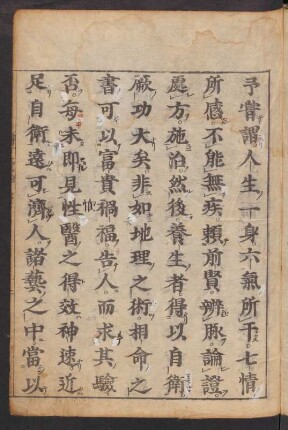 予嘗謂人生一身六氣所干七情
所感不能無疾頼前賢辨脉論證
處方施治然後養生者得以自衛
厥功大矣非如地理之術相命之
書可以富貴禍福告人而求其驗
否每未即見性醫之得效神速近
足自衛遠可濟人諸藝之中當以